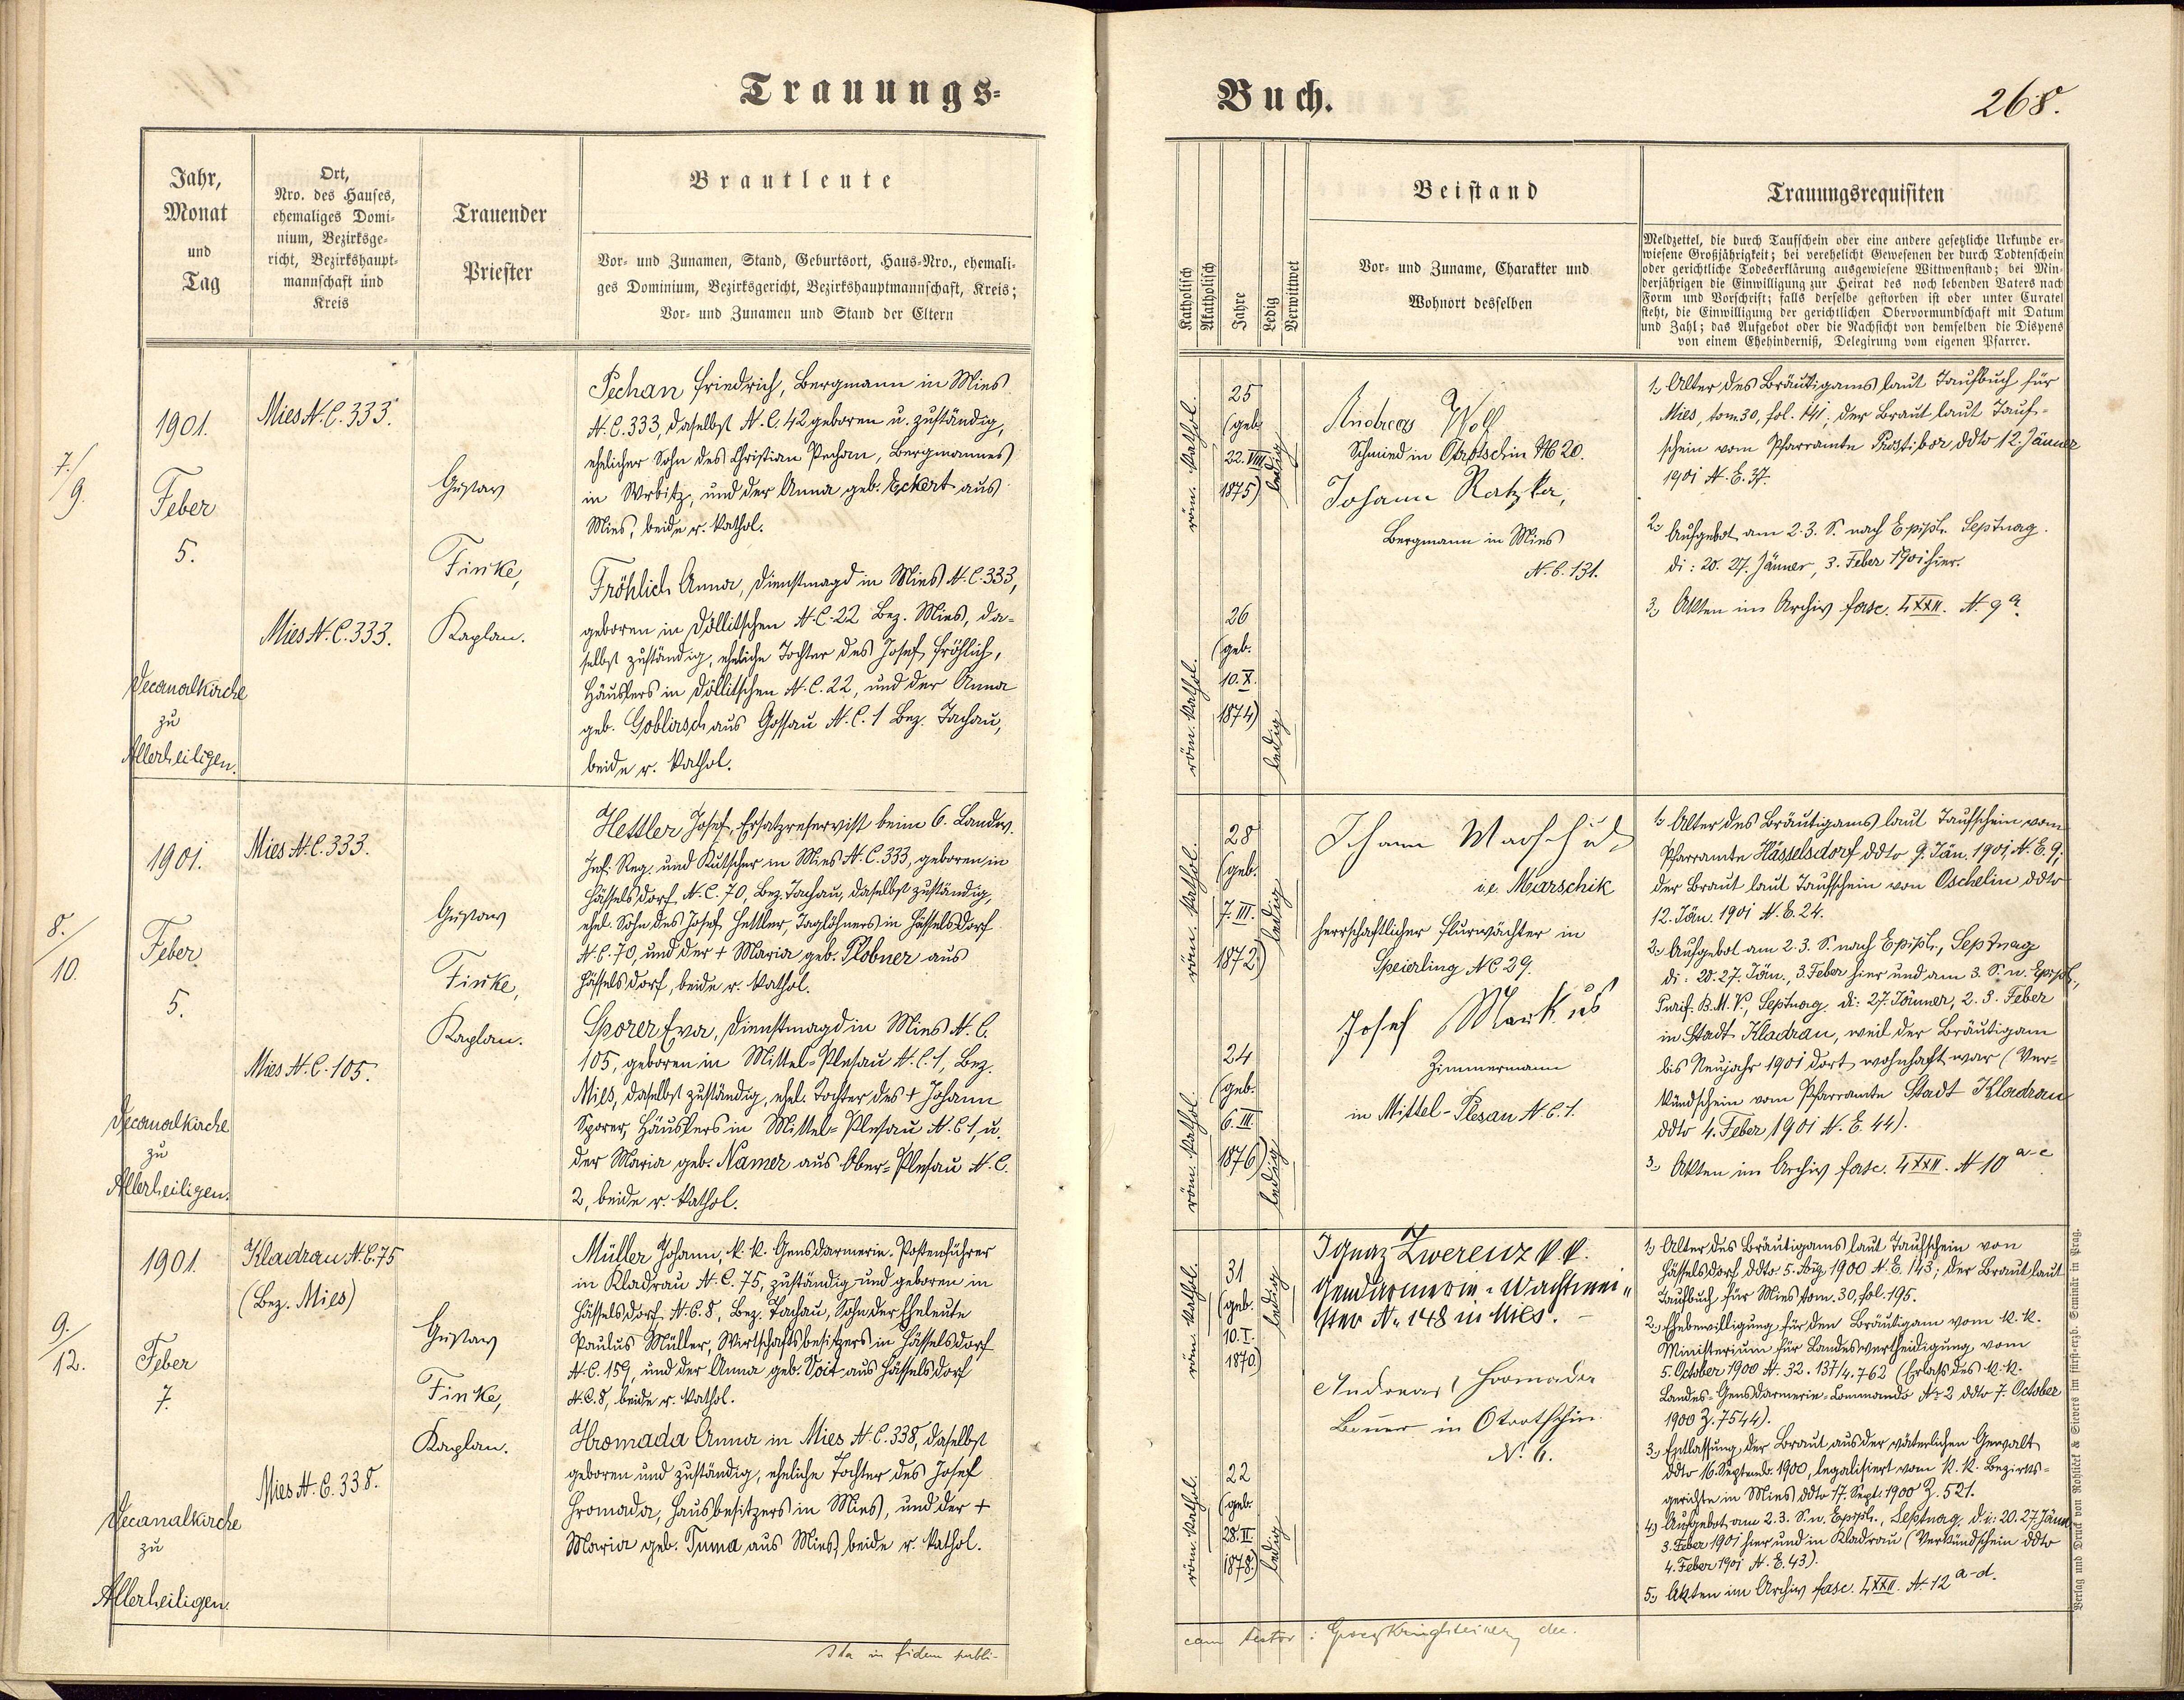 Trauungs-
Jahr,
Monat
und
Tag
Ort,
Nro. des Hauses,
ehemaliges Domi-
nium, Bezirksge-
richt, Bezirkshaupt-
mannschaft und
Kreis
Trauender
Priester
Brautleute
Vor- und Zunamen, Stand, Geburtsort, Haus-Nro., ehemali-
ges Dominium, Bezirksgericht, Bezirkshauptmannschaft, Kreis;
Vor- und Zunamen und Stand der Eltern
7./
9.
1901.
Feber
5.
Decanalkirche
zu
Allerheiligen.
Mies N.C. 333.
Mies N.C. 333.
Gustav
Finke,
Kaplan.
Pechan Friedrich, Bergmann in Mies
N.C. 333, daselbst N.C. 42 geboren u. zuständig,
ehelicher Sohn des Christian Pechan, Bergmannes
in Wrbitz, und der Anna geb. Eckert aus
Mies, beide r. kathol.
Fröhlich Anna, Dienstmagd in Mies N.C. 333,
geboren in Döllitschen N.C. 22 Bez. Mies, da-
selbst zuständig, eheliche Tochter des Josef Fröhlich,
Häuslers in Döllitschen N.C. 22, und der Anna
geb. Goblirsch aus Gossau N.C. 1 Bez. Tachau,
beide r. kathol.
8./
10.
1901.
Feber
5.
Decanalkirche
zu
Allerheiligen.
Mies N.C. 333.
Mies N.C. 105.
Gustav
Finke,
Kaplan.
Hettler Josef, Ersatzreservist beim 6. Landw.
Inf. Reg. und Kutscher in Mies N.C. 333, geboren in
Hässelsdorf N.C. 70, Bez. Tachau, daselbst zuständig,
ehel. Sohn des Josef Hettler, Taglöhners in Hässelsdorf
N.C. 70, und der + Maria geb. Plobner aus
Hässelsdorf, beide r. kathol.
Sporer Eva, Dienstmagd in Mies N.C.
105, geboren in Mittel-Plesau N.C. 1, Bez.
Mies, daselbst zuständig, ehel. Tochter des + Johann
Sporer, Häuslers in Mittel-Plesau N.C. 1, u.
der Maria geb. Namer aus Ober-Plesau N.C.
2, beide r. kathol.
9./
12.
1901.
Feber
7.
Decanalkirche
zu
Allerheiligen.
Kladrau N.C. 75
(Bez. Mies)
Mies N.C. 338.
Gustav
Finke,
Kaplan.
Müller Johann, k. k. Gensdarmerie-Postenführer
in Kladrau N.C. 75, zuständig und geboren in
Hässelsdorf N.C. 8, Bez. Tachau, Sohn der Eheleute
Paulus Müller, Wirtschaftsbesitzers in Hässelsdorf
N.C. 159, und der Anna geb. Voit aus Hässelsdorf
N.C. 8, beide r. kathol.
Hromada Anna in Mies N.C. 338, daselbst
geboren und zuständig, eheliche Tochter des Josef
Hromada, Hausbesitzers in Mies, und der +
Maria geb. Tuma aus Mies, beide r. kathol.
Ita in fidem publi-
Buch.
268.
Katholisch
Akatholisch
Jahre
Ledig
Verwittwet
Beistand
Vor- und Zuname, Charakter und
Wohnort desselben
Trauungsrequisiten
Meldzettel, die durch Taufschein oder eine andere gesetzliche Urkunde er-
wiesene Großjährigkeit; bei verehelicht Gewesenen der durch Todtenschein
oder gerichtliche Todeserklärung ausgewiesene Wittwenstand; bei Min-
derjährigen die Einwilligung zur Heirat des noch lebenden Vaters nach
Form und Vorschrift; falls derselbe gestorben ist oder unter Curatel
steht, die Einwilligung der gerichtlichen Obervormundschaft mit Datum
und Zahl; das Aufgebot oder die Nachsicht von demselben die Dispens
von einem Ehehinderniß, Delegirung vom eigenen Pfarrer.
röm. kathol.
25
(geb.
22. VIII.
1875)
ledig
röm. kathol.
26
(geb.
10. X.
1874)
ledig
Andreas Wolf
Schmied in Otrotschin N 20.
Johann Ratzka,
Bergmann in Mies
N.C. 131.
1.) Alter des Bräutigams laut Taufbuch für
Mies, tom. 30, fol. 141; der Braut laut Tauf-
schein vom Pfarramte Prostibor ddto 12. Jänner
1901 N.E. 37.
2.) Aufgebot am 2. 3. S. nach Epiph. Septuag.
di: 20. 27. Jänner, 3. Feber 1901 hier.
3.) Akten im Archiv fasc. LXXII. N. 9 a.
röm. kathol.
28
(geb.
7. III.
1872)
ledig
röm. kathol.
24
(geb.
6. III.
1876)
ledig
i.e. Marschik
herrschaftlicher Flurwächter in
Speierling NC 29.
Josef Markus
Zimmermann
in Mittel-Plesau N.C. 1.
1.) Alter des Bräutigams laut Taufschein vom
Pfarramte Hässelsdorf ddto 9. Jän. 1901 N.E. 9;
der Braut laut Taufschein von Oschelin ddto
12. Jän. 1901 N.E. 24.
2.) Aufgebot am 2. 3. S. nach Epiph., Septuag
di: 20. 27. Jän., 3. Feber hier und am 3. S. n. Epiph.,
Purif. B. M. V., Septuag. di: 27. Jänner, 2. 3. Feber
in Stadt Kladrau, weil der Bräutigam
bis Neujahr 1901 dort wohnhaft war (Ver-
kündschein vom Pfarramte Stadt Kladrau
ddto 4. Feber 1901 N.E. 44).
3.) Akten im Archiv fasc. LXXII. N 10 a-c.
röm. kathol.
31
(geb.
10. I.
1870)
ledig
röm. kathol.
22
(geb.
28. II.
1878)
ledig
Ignaz Zwerenz k. k.
Gendarmerie-Wachtmei-
ster N. 148 in Mies.
Andreas Hromada
Bauer in Otrotschin
N. 6.
1.) Alter des Bräutigams laut Taufschein von
Hässelsdorf ddto 5. Aug. 1900 N.E. 143; der Braut laut
Taufbuch für Mies tom. 30, fol. 195.
2.) Ehebewilligung für den Bräutigam vom k. k.
Ministerium für Landesvertheidigung vom
5. October 1900 N. 32.137/4.762 (Erlass des k. k.
Landes-Gensdarmerie-Commando Nr 2 ddto 7. October
1900 Z. 7544).
3.) Entlassung der Braut aus der väterlichen Gewalt
ddto 16. Septemb. 1900, legalisiert vom k. k. Bezirks-
gerichte in Mies ddto 17. Sept. 1900 Z. 521.
4.) Aufgebot am 2. 3. S. n. Epiph., Septuag. d.i: 20. 27. Jänn.
3. Feber 1901 hier und in Kladrau (Verkündschein ddto
4. Feber 1901 N.E. 43).
5.) Akten im Archiv fasc. LXXII. N. 12 a-d.
cam testor: dec.
Verlag und Druck von Rohliček & Sievers im fürst-erzb. Seminär in Prag.